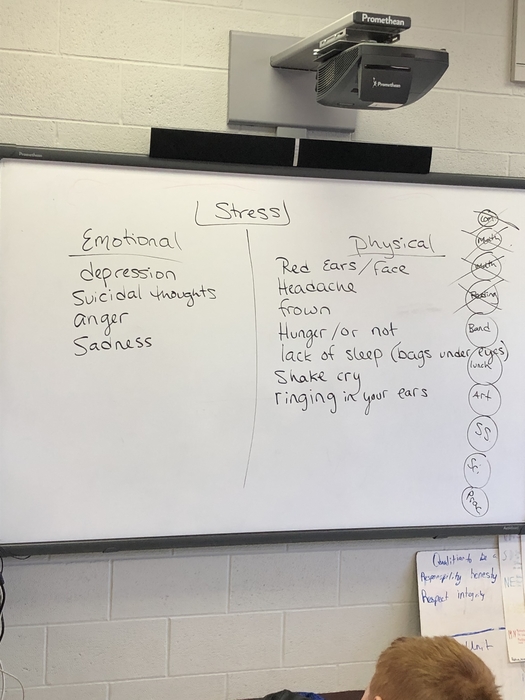 Promethean
Promethean
Promethean
Stress
Emotional
depression
Suicidal thoughts
anger
Sadness
physical
Red Ears/face
Headache
frown
Hunger/or not
lack of sleep (bags under eyes)
Shake cry
ringing in your ears
Math
Math
Band
lunch
Art
SS
Responsibility honesty
Respect integrity